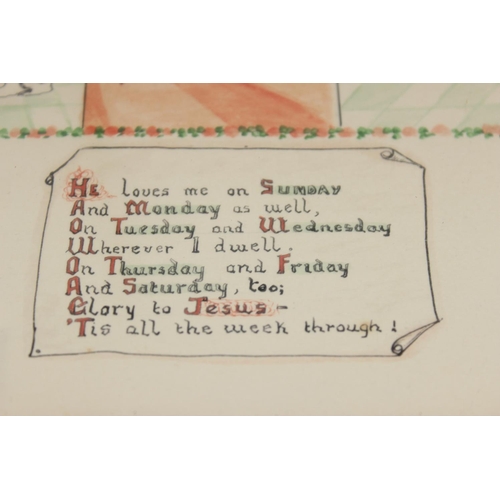 He loves me on Sunday
And Monday as well,
On Tuesday and Wednesday
Wherever I dwell.
On Thursday and Friday
And Saturday, too;
Glory to Jesus –
'Tis all the week through!